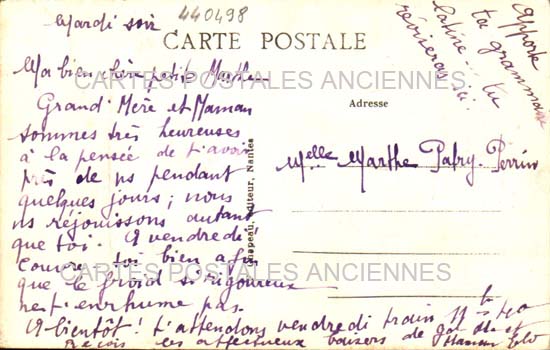 Mardi soir
440498
CARTE POSTALE
Apporte
ta grammaire
latine.. tu
réviseras ici
Ma bien chère petite Marthe
CARTES POSTALES ANCIENNES
Grand'Mère et Maman
Adresse
sommes très heureuses
à la pensée de t'avoir
près de ns pendant
quelques jours; nous
ns réjouissons autant
que toi. A vendredi
Couvre toi bien afin
que le froid si rigoureux
ne t'enrhume pas.
A bientôt! t'attendons vendredi train 11h
Reçois les affectueux baisers de et Maman
Melle Marthe Patry-Perrin
Chapeau, Éditeur, Nantes
CARTES POSTALES ANCIENNES